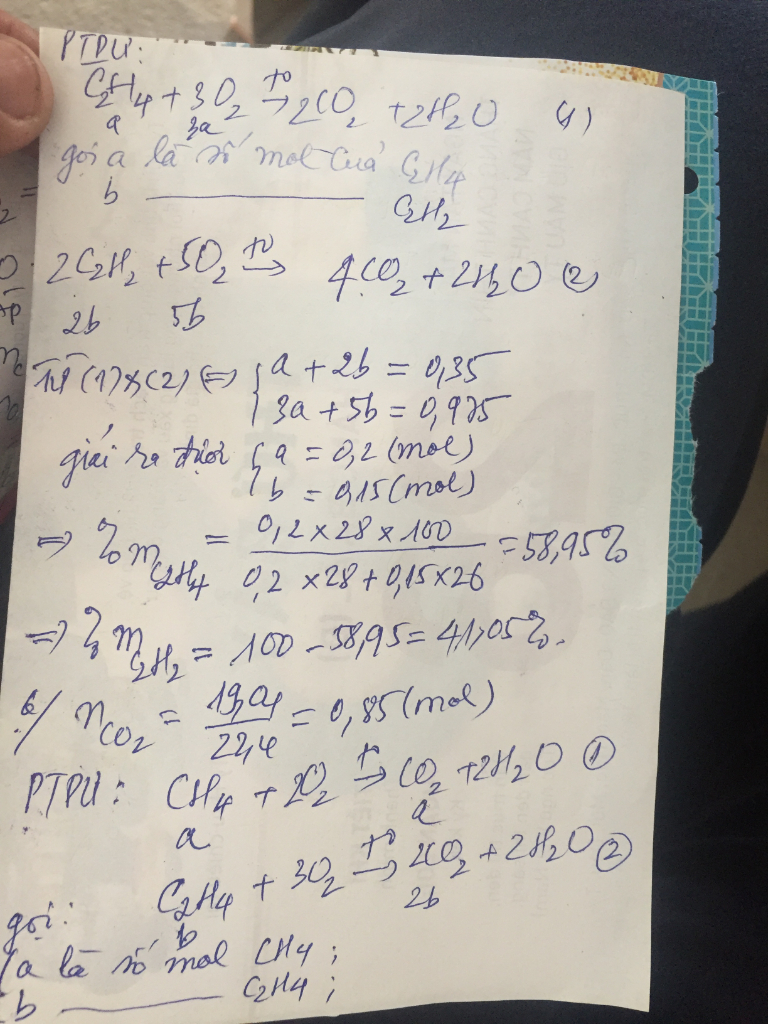 PTPƯ:
C₂H₄ + 3O₂ →(t⁰) 2CO₂ + 2H₂O (1)
a 3a
gọi a là số mol của C₂H₄
b ———— C₂H₂
2C₂H₂ + 5O₂ →(t⁰) 4CO₂ + 2H₂O (2)
2b 5b
Từ (1)&(2) (=) { a + 2b = 0,35
3a + 5b = 0,975
giải ra được { a = 0,2 (mol)
b = 0,15 (mol)
=> %m C₂H₄ = (0,2 × 28 × 100) / (0,2 × 28 + 0,15 × 26) = 58,95%
=> %m C₂H₂ = 100 - 58,95 = 41,05%.
6/ n CO₂ = 19,04 / 22,4 = 0,85 (mol)
PTPƯ: CH₄ + 2O₂ →(t⁰) CO₂ + 2H₂O (1)
a a
C₂H₄ + 3O₂ →(t⁰) 2CO₂ + 2H₂O (2)
b 2b
gọi:
a là số mol CH₄ ;
b ———— C₂H₄ ;